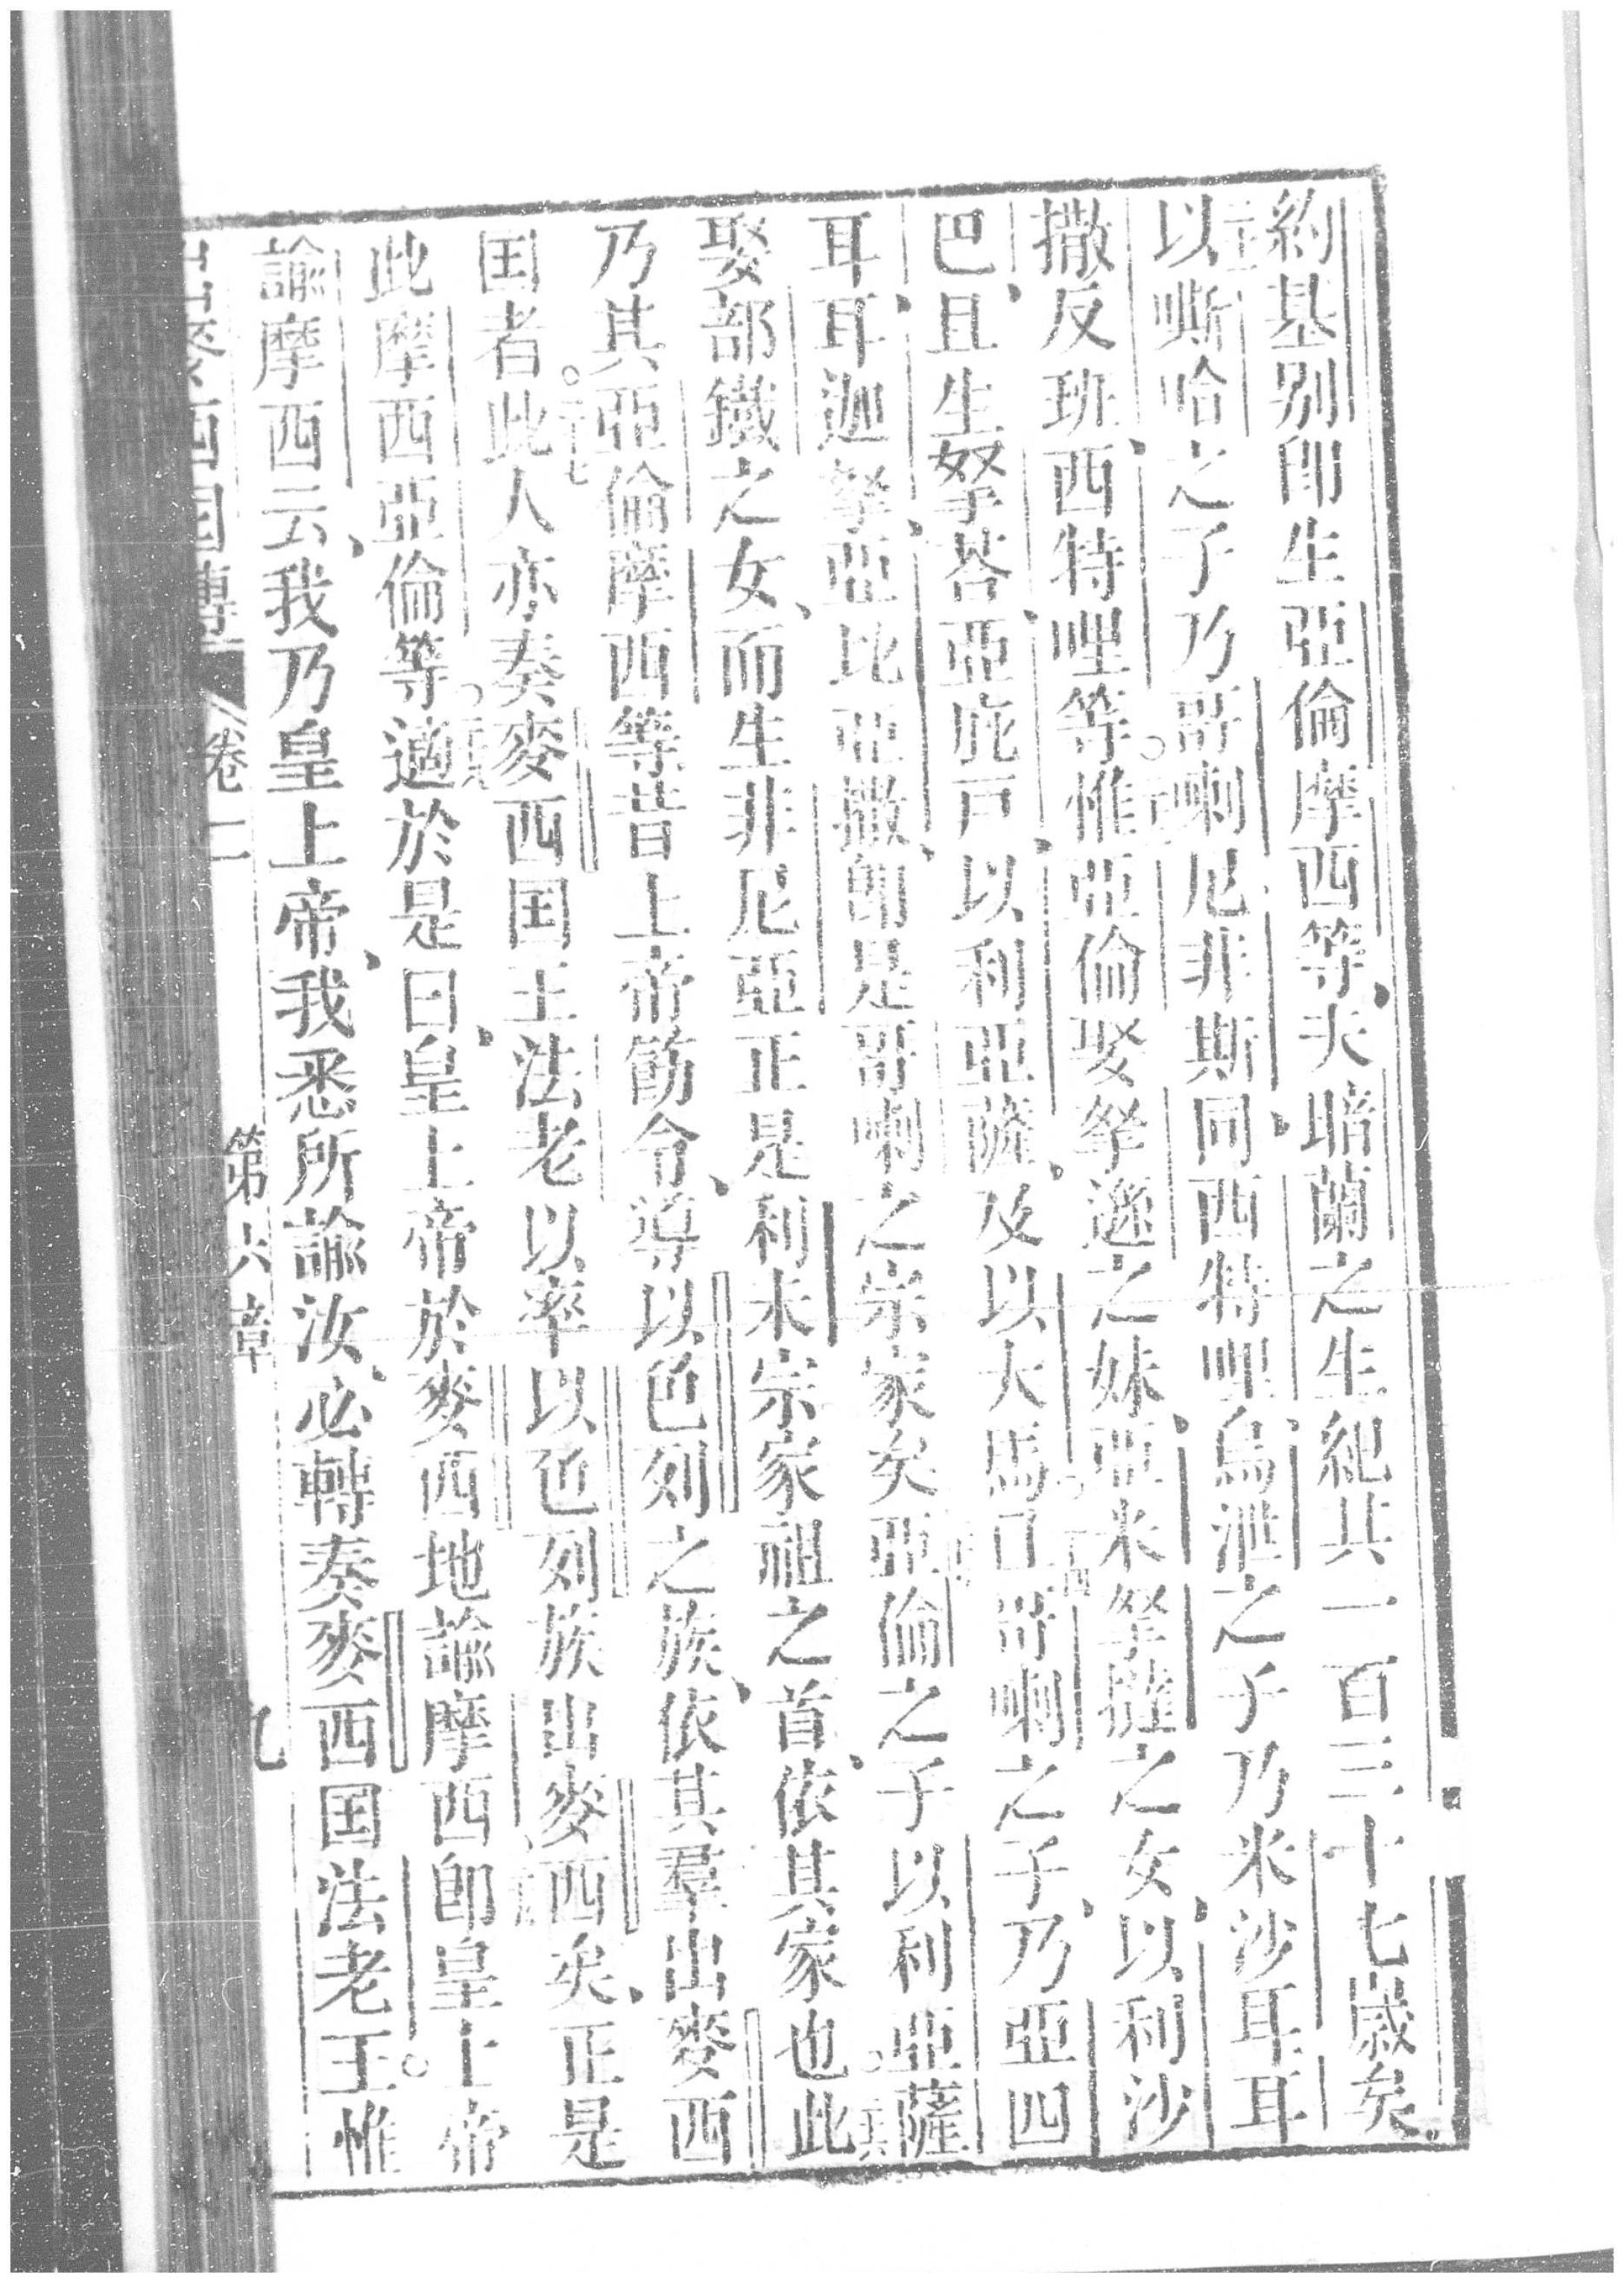 約基別即生亞倫摩西等夫暗蘭之生紀共一百三十七歲矣
以嘶哈之子乃哥喇尼非期同西特哩烏泄之子乃米沙耳耳
撒反班西特哩等惟亞倫娶拏遜之妹亞米拏撻之女以利沙
巴且生拏荅亞庇戸以利亞薩及以大馬口哥喇之子乃亞四
耳耳迦拏亞比亞撒即是哥喇之宗家矣亞倫之子以利亞薩
娶部鐵之女而生非尼亞正是利未宗家祖之首依其家也此
乃其亞倫摩西等昔上帝飭令導以色列之族依其羣出麥西
囯者此人亦奏麥西囯王法老以率以色列族出麥西矣正是
此摩西亞倫等適於是日皇上帝於麥西地諭摩西即皇上帝
諭摩西云我乃皇上帝我悉所諭汝必轉奏麥西囯法老王惟
出麥西囯傳 卷二 第六章 九